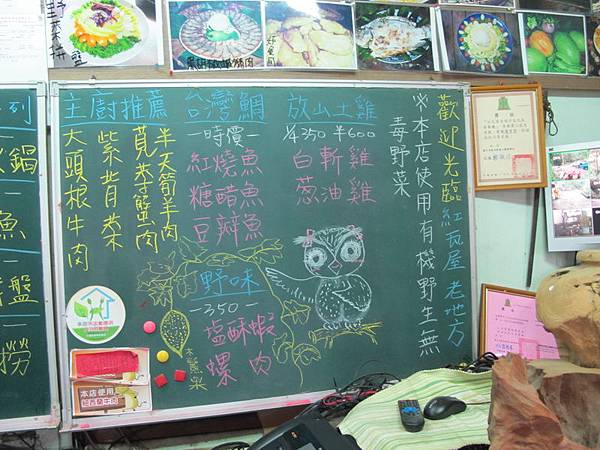 歡迎光臨 紅瓦屋 老地方
※本店使用有機野生無
毒野菜
放山土雞
¥350 ¥600
白斬雞
蔥油雞
台灣鯛
一時價一
紅燒魚
糖醋魚
豆瓣魚
野味
一350一
鹽酥蝦
螺肉
主廚推薦
半天筍羊肉
莧香蟹肉
紫背菜
大頭根牛肉
木鱉菜
列
鍋
魚
盤
撈
本店使用
紐西蘭牛肉